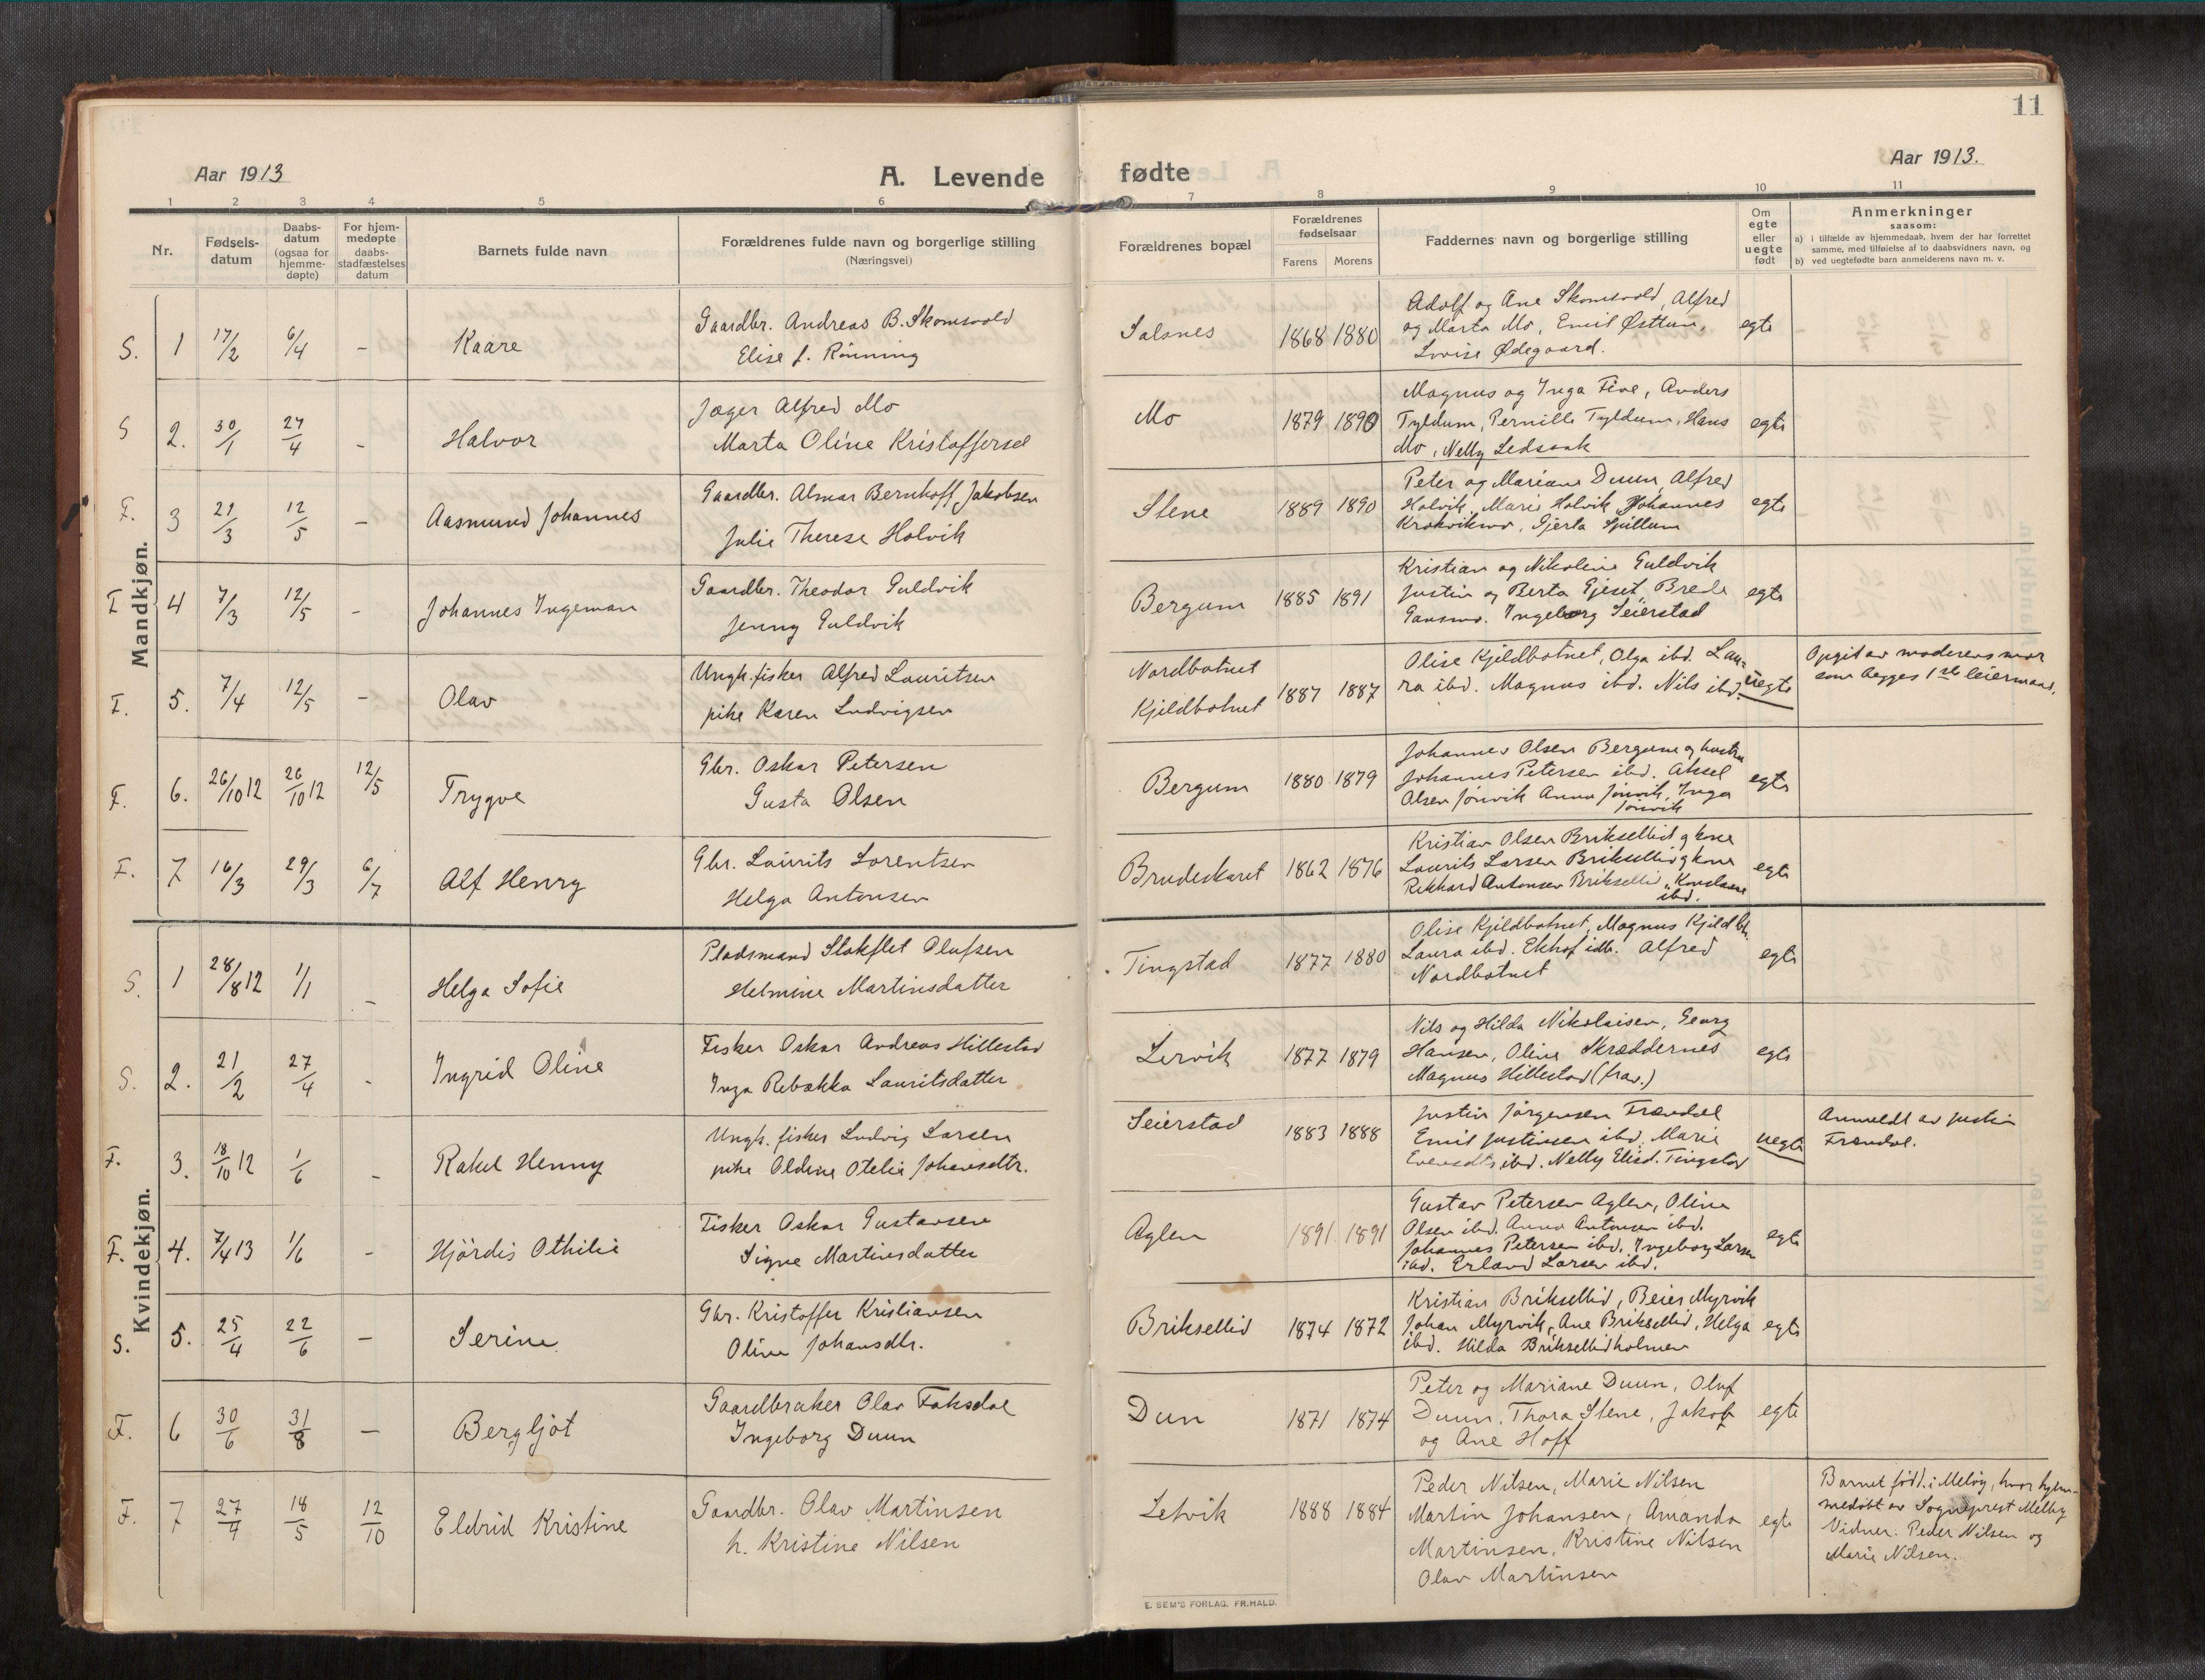 11
Aar 1913
A. Levende
fødte
Aar 1913.
1 2 3 4 5 6 7 8 9 10 11
Nr.
Fødsels-
datum
Daabs-
datum
(ogsaa for
hjemme-
døpte)
For hjem-
medøpte
daabs-
stadfæstelses
datum
Barnets fulde navn
Forældrenes fulde navn og borgerlige stilling
(Næringsvei)
Forældrenes bopæl
Forældrenes
fødselsaar
Farens Morens
Faddernes navn og borgerlige stilling
Om
egte
eller
uegte
født
Anmerkninger
saasom:
a) i tilfælde av hjemmedaab, hvem der har forrettet
samme, med tilføielse af to daabsvidners navn, og
b) ved uegtefødte barn anmelderens navn m. v.
Mandkjøn.
S. 1 17/2 6/4 - Kaare
Gaardbr. Andreas B. Skomsvold
Elise f. Rönning
Salsnes 1868 1880
Adolf og Ane Skomsvold, Alfred
og Marta Mo, Emil Østtun,
Lovise Ødegaard.
egte
S 2. 30/1 27/4 - Halvor
Jæger Alfred Mo
Marta Oline Kristoffersel
Mo 1879 1890
Magnus og Inga Five, Anders
Tyldum, Pernille Tyldum, Hans
Mo, Nelly Ledsaak
egte
F. 3 21/3 12/5 - Aasmund Johannes
Gaardbr. Almar Bernhoff Jakobsen
Julie Therese Holvik
Stene 1889 1890
Peter og Mariane Duun, Alfred
Holvik, Marie Holvik, Johannes
Krokvikmo, Gjerta Spillum
egte
F 4 7/3 12/5 - Johannes Ingeman
Gaardbr. Theodor Guldvik
Jenny Guldvik
Bergum 1885 1891
Kristian og Nikoline Guldvik
Justin og Berta Gjeset, Brede
Gansmo. Ingeborg Seierstad
egte
F. 5. 7/4 12/5 - Olav
Ungk. fisker Alfred Lauritsen
pike Karen Ludvigsen
Nordbotnet
Kjeldbotnet
1887 1887
Olise Kjeldbotnet, Olga ibd. Lau-
ra ibd. Magnus ibd. Nils ibd.
uegte
Opgit av moderens mor
som begges 1ste leiermaal.
F. 6. 26/10 12 26/10 12 12/5 Trygve
Gbr. Oskar Petersen
Gusta Olsen
Bergum 1880 1879
Johannes Olsen Bergum og hustru
Johannes Petersen ibd. Aksel
Olsen Jönvik Anna Jönvik, Inga
Jönvik
egte
F. 7 16/3 29/3 6/7 Alf Henry
Gbr. Laurits Lorentsen
Helga Antonsen
Brudeskaret 1862 1876
Kristian Olsen Briksellid og kone
Laurits Larsen Briksellid og kone
Rikhard Antonsen Briksellid,
ibd.
egte
Kvindekjøn.
S. 1 28/8 12 1/1 - Helga Sofie
Pladsmand Stokflet Olufsen
Helmine Martinsdatter
Tingstad 1877 1880
Olise Kjeldbotnet, Magnus Kjeldbtn.
Laura ibd. Ekhof idb. Alfred
Nordbotnet
egte
S. 2. 21/2 27/4 - Ingrid Oline
Fisker Oskar Andreas Hillestad
Inga Rebækka Lauritsdatter
Lervik 1877 1879
Nils og Hilda Nikolaisen, Georg
Hansen, Oline Skræddernes
Magnus Hillestad (frav.)
egte
F. 3. 18/10 12 1/6 - Rakel Henny
Ungk. fisker Ludvig Larsen
pike Oldine Otelie Johansdtr.
Seierstad 1883 1888
Justin Jörgensen Frændal
Emil Justinsen ibd. Marie
Evensdtr ibd. Nelly Elisd. Tingstad
uegte
Anmeldt av Justin
Frændal.
F. 4. 7/4 13 1/6 - Hjördis Othilie
Fisker Oskar Gustavsen
Signe Martinsdatter
Aglen 1891 1891
Gustav Petersen Aglen, Oline
Olsen ibd. Anna Antonsen ibd.
Johannes Petersen ibd. Ingeborg Larsen
ibd. Erland Larsen ibd.
egte
S. 5. 25/4 22/6 - Serine
Gbr. Kristoffer Kristiansen
Oline Johansdtr.
Briksellid 1874 1872
Kristian Briksellid, Beier Myrvik
Johan Myrvik, Ane Briksellid, Helga
ibd. Hilda Briksellidholmen
egte
F. 6 30/6 31/8 - Bergljot
Gaardbruker Olav Faksdal
Ingeborg Duun
Dun 1871 1874
Peter og Mariane Duun, Oluf
Duun, Thora Stene, Jakob
og Ane Hoff
egte
F. 7 27/4 18/5 12/10 Eldrid Kristine
Gaardbr. Olav Martinsen
h. Kristine Nilsen
Letvik 1888 1884
Peder Nilsen, Marie Nilsen
Martin Johansen, Amanda
Martinsen, Kristine Nilsen
Olav Martinsen
egte
Barnet född i Melöy, hvor hjem-
medöbt av Sogneprest Melby
Vidner: Peder Nilsen og
Marie Nilsen.
E. SEM'S FORLAG, FR.HALD.